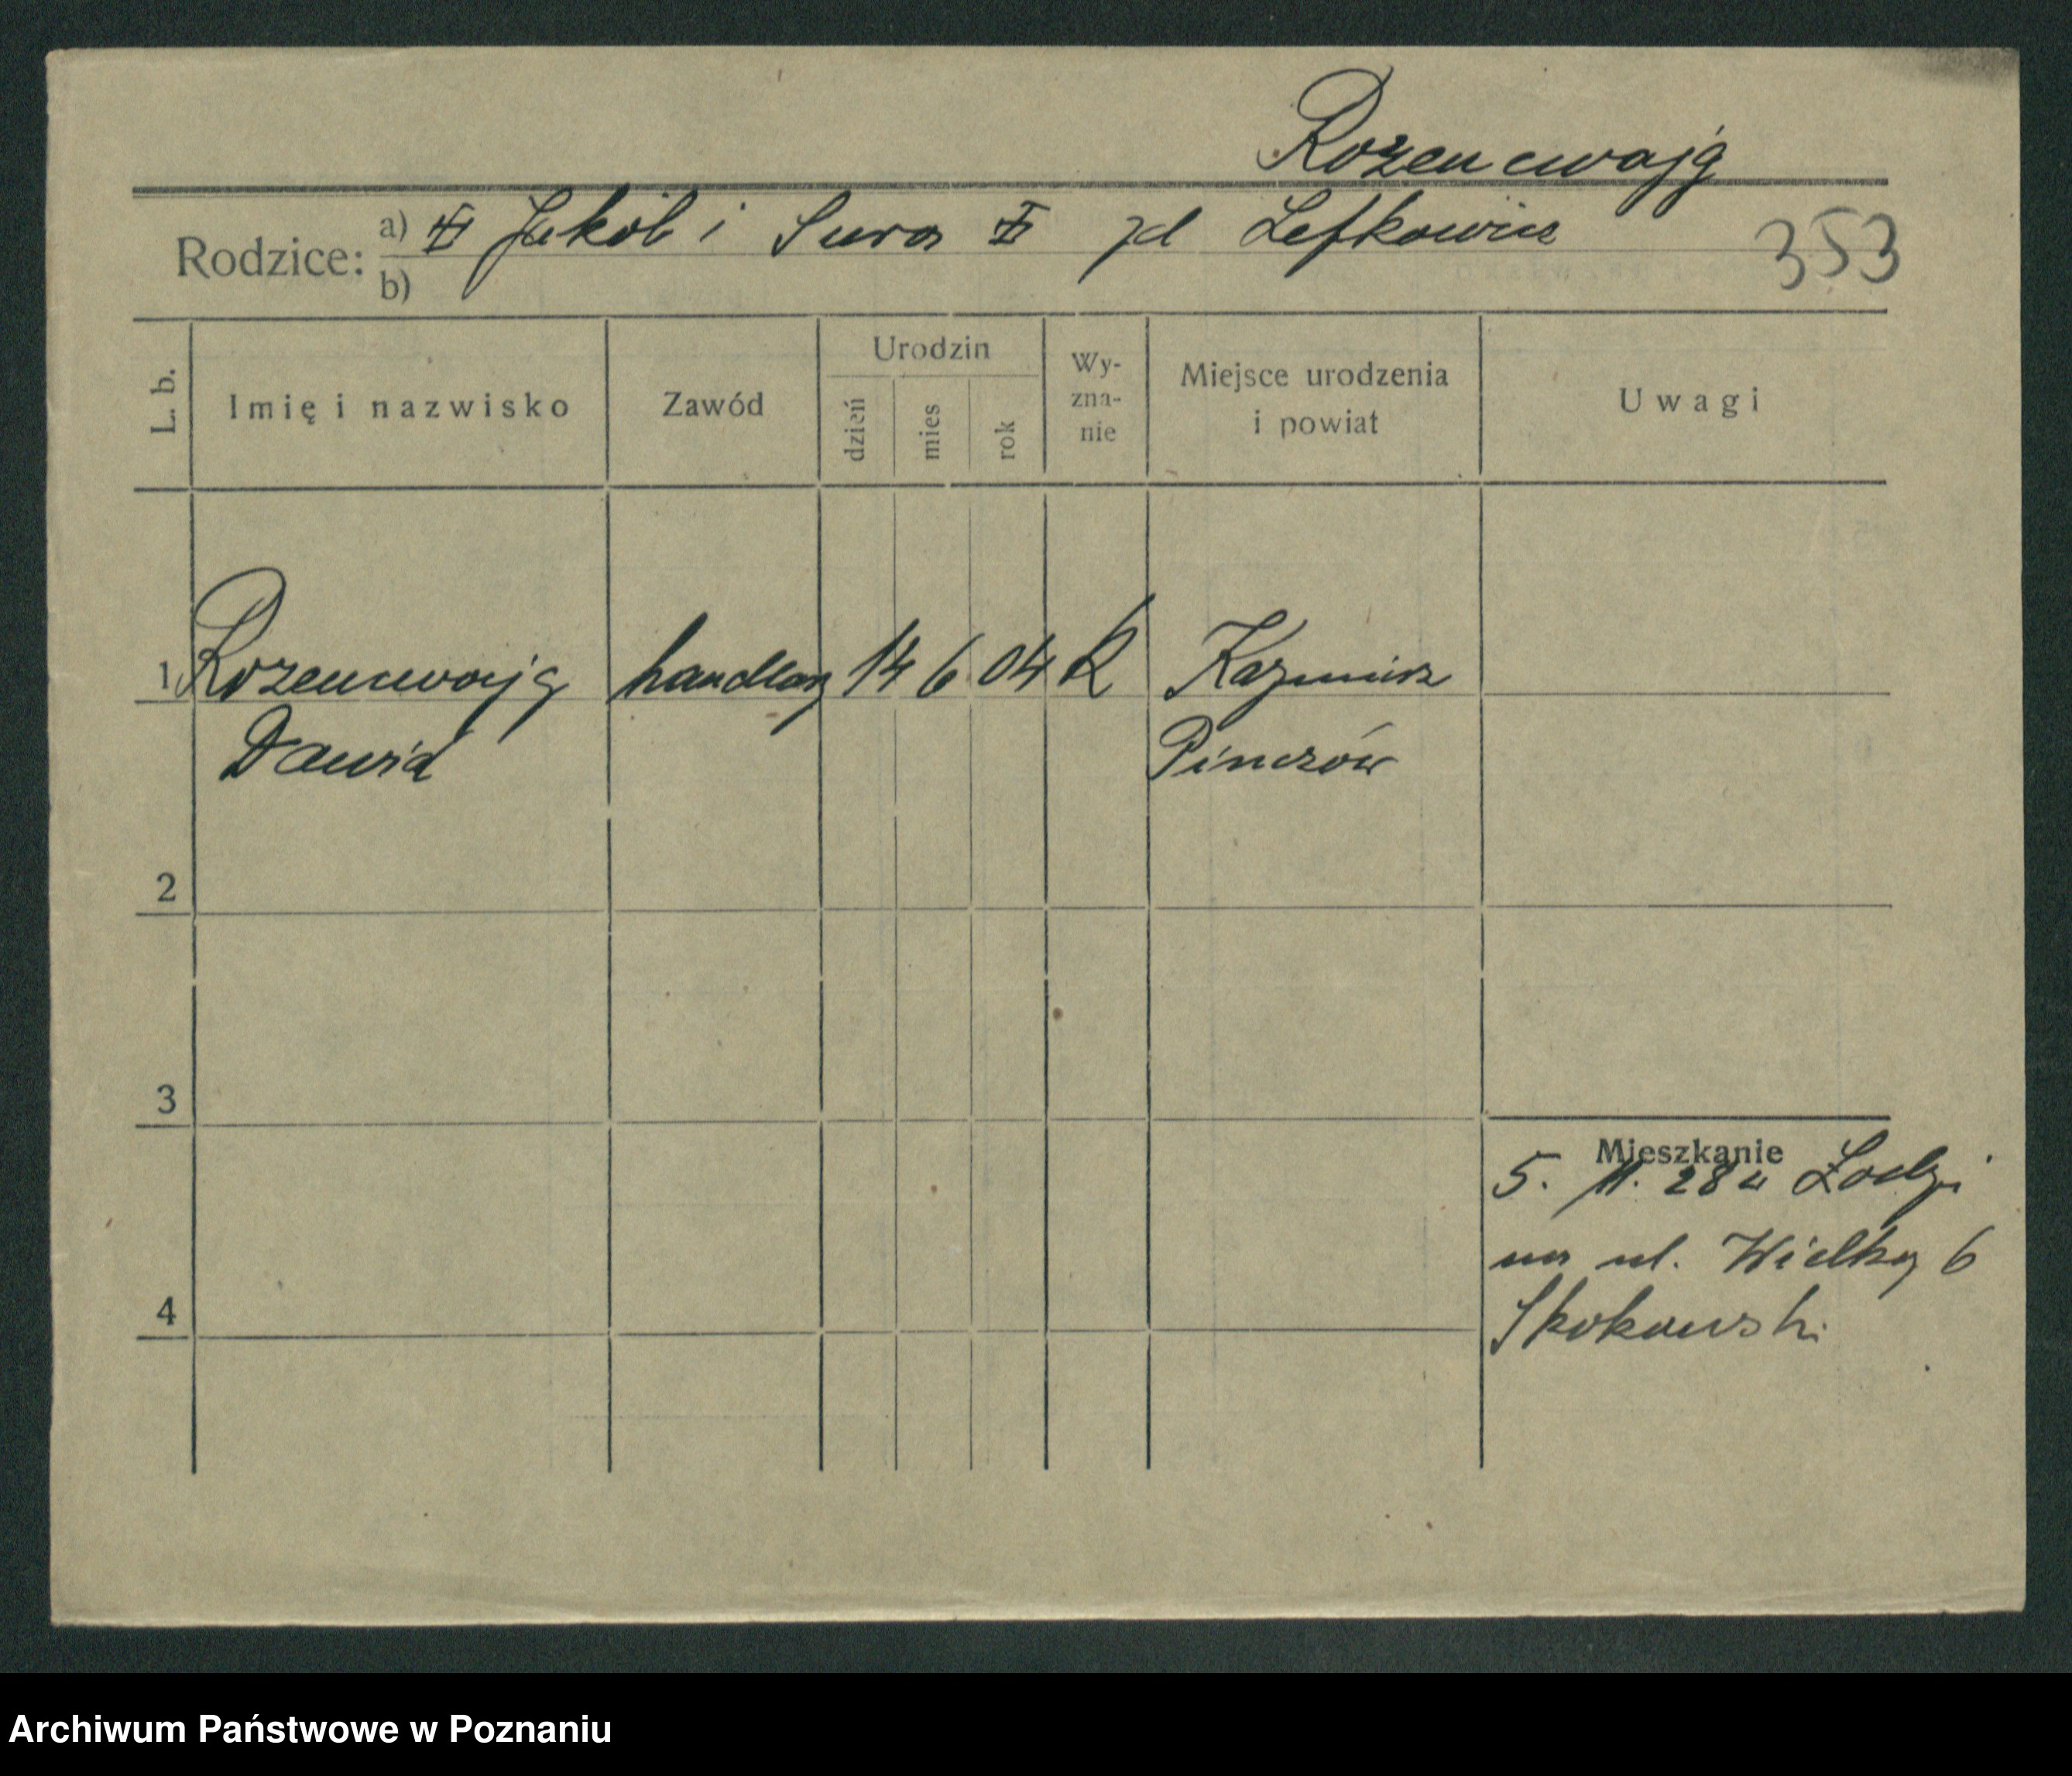 Rozencwajg
Rodzice: a) Jakób i Sura zd Lefkowicz
b)
353
L. b.
Imię i nazwisko
Zawód
Urodzin
dzień
mies
rok
Wy-
zna-
nie
Miejsce urodzenia
i powiat
Uwagi
1 Rozencwajg handlarz 14 6 04 Kazimierz
Dawid Pinczów
2
3
4
Mieszkanie
5. 11. 28 z Łodzi
na ul. Wielką 6
Skokowski
Archiwum Państwowe w Poznaniu